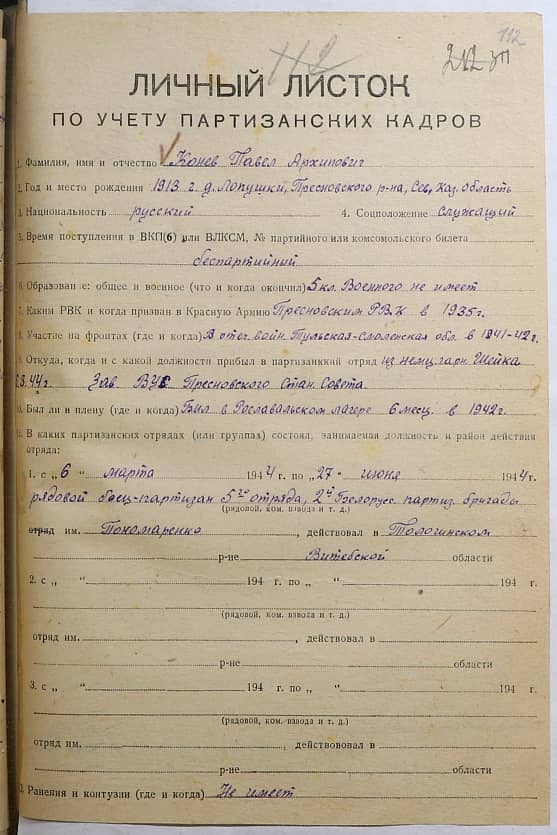 112
112
212 зп
ЛИЧНЫЙ ЛИСТОК
ПО УЧЕТУ ПАРТИЗАНСКИХ КАДРОВ
1. Фамилия, имя и отчество Конев Павел Архипович
2. Год и место рождения 1913 г. д. Лопушки, Пресновского р-на, Сев. Каз. область
3. Национальность русский 4. Соцположение Служащий
5. Время поступления в ВКП(б) или ВЛКСМ, № партийного или комсомольского билета
беспартийный
6. Образование: общее и военное (что и когда окончил) 5 кл. Военного не имеет
7. Каким РВК и когда призван в Красную Армию Пресновским РВК в 1935 г.
8. Участие на фронтах (где и когда) В отеч. войн. Тульская-Смоленская обл. в 1941-42 г.
9. Откуда, когда и с какой должности прибыл в партизанккий отряд из немц. гарн. Шейка
44 г. Зав ВУС Пресновского Стан. Совета.
10. Был ли в плену (где и когда) Был в Рославальском лагере 6 месц. в 1942 г.
11. В каких партизанских отрядах (или группах) состоял, занимаемая должность и район действия
отряда:
1. с „ 6 “ марта 194 4 г. по „ 27 “ июня 194 4 г.
рядовой боец-партизан 5го отряда, 2й Белорус. партиз. бригады
(рядовой, ком. взвода и т. д.)
отряд им. Пономаренко, действовал в Толочинском
р-не Витебской области
2. с „ “ 194 г. по „ “ 194 г.
(рядовой, ком. взвода и т. д.)
отряд им. , действовал в
р-не области
3. с „ “ 194 г. по „ “ 194 г.
(рядовой, ком. взвода и т. д.)
отряд им. , действововал в
р-не области
12. Ранения и контузии (где и когда) Не имеет